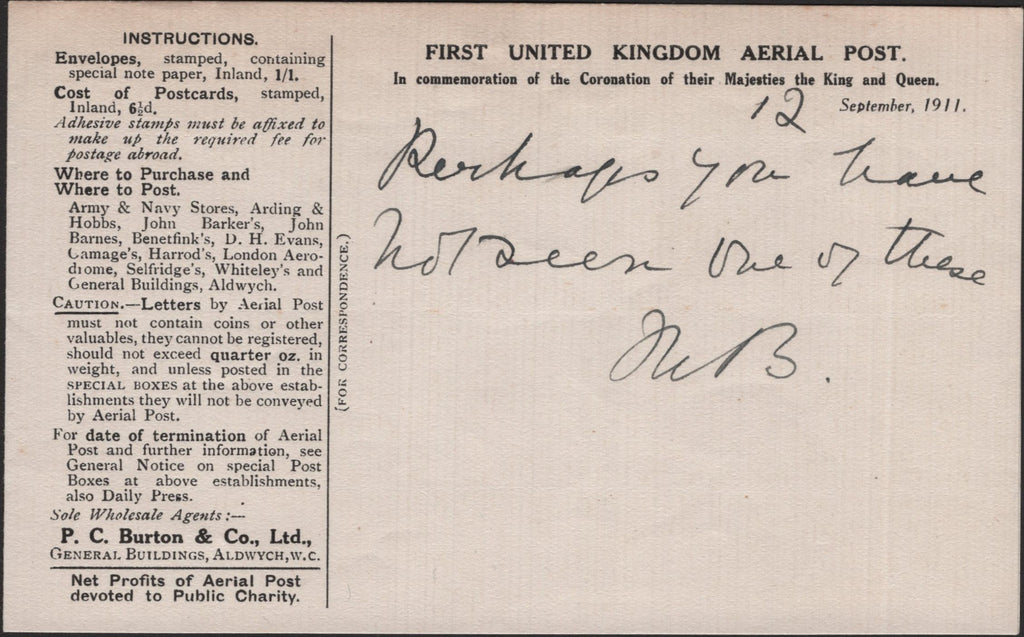 INSTRUCTIONS.
Envelopes, stamped, containing
special note paper, Inland, 1/1.
Cost of Postcards, stamped,
Inland, 6½d.
Adhesive stamps must be affixed to
make up the required fee for
postage abroad.
Where to Purchase and
Where to Post.
Army & Navy Stores, Arding &
Hobbs, John Barker's, John
Barnes, Benetfink's, D. H. Evans,
Gamage's, Harrod's, London Aero-
drome, Selfridge's, Whiteley's and
General Buildings, Aldwych.
CAUTION.—Letters by Aerial Post
must not contain coins or other
valuables, they cannot be registered,
should not exceed quarter oz. in
weight, and unless posted in the
SPECIAL BOXES at the above estab-
lishments they will not be conveyed
by Aerial Post.
For date of termination of Aerial
Post and further information, see
General Notice on special Post
Boxes at above establishments,
also Daily Press.
Sole Wholesale Agents:—
P. C. Burton & Co., Ltd.,
GENERAL BUILDINGS, ALDWYCH, W.C.
Net Profits of Aerial Post
devoted to Public Charity.
(FOR CORRESPONDENCE.)
FIRST UNITED KINGDOM AERIAL POST.
In commemoration of the Coronation of their Majesties the King and Queen.
12 September, 1911.
Perhaps you have
not seen one of these